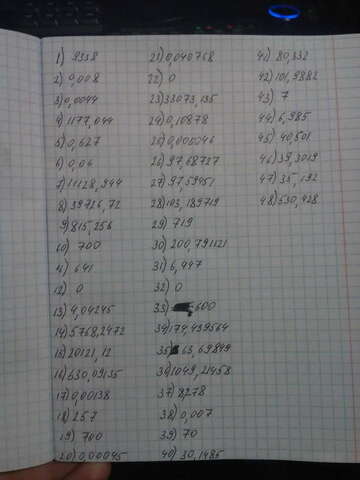 1) 9338
2) 0,008
3) 0,0044
4) 1177,044
5) 0,627
6) 0,04
7) 11128,944
8) 39726,72
9) 815,256
10) 700
11) 641
12) 0
13) 4,04245
14) 5768,2472
15) 20121,12
16) 630,09135
17) 0,00138
18) 257
19) 700
20) 0,00045
21) 0,040768
22) 0
23) 33073,135
24) 0,10878
25) 0,000046
26) 97,68727
27) 97,59451
28) 103,189719
29) 719
30) 200,791121
31) 6,447
32) 0
33) 600
34) 174,439564
35) 63,69849
36) 1049,21458
37) 8,278
38) 0,007
39) 70
40) 30,1485
41) 80,332
42) 101,9882
43) 7
44) 6,985
45) 40,501
46) 39,3019
47) 35,192
48) 530,428